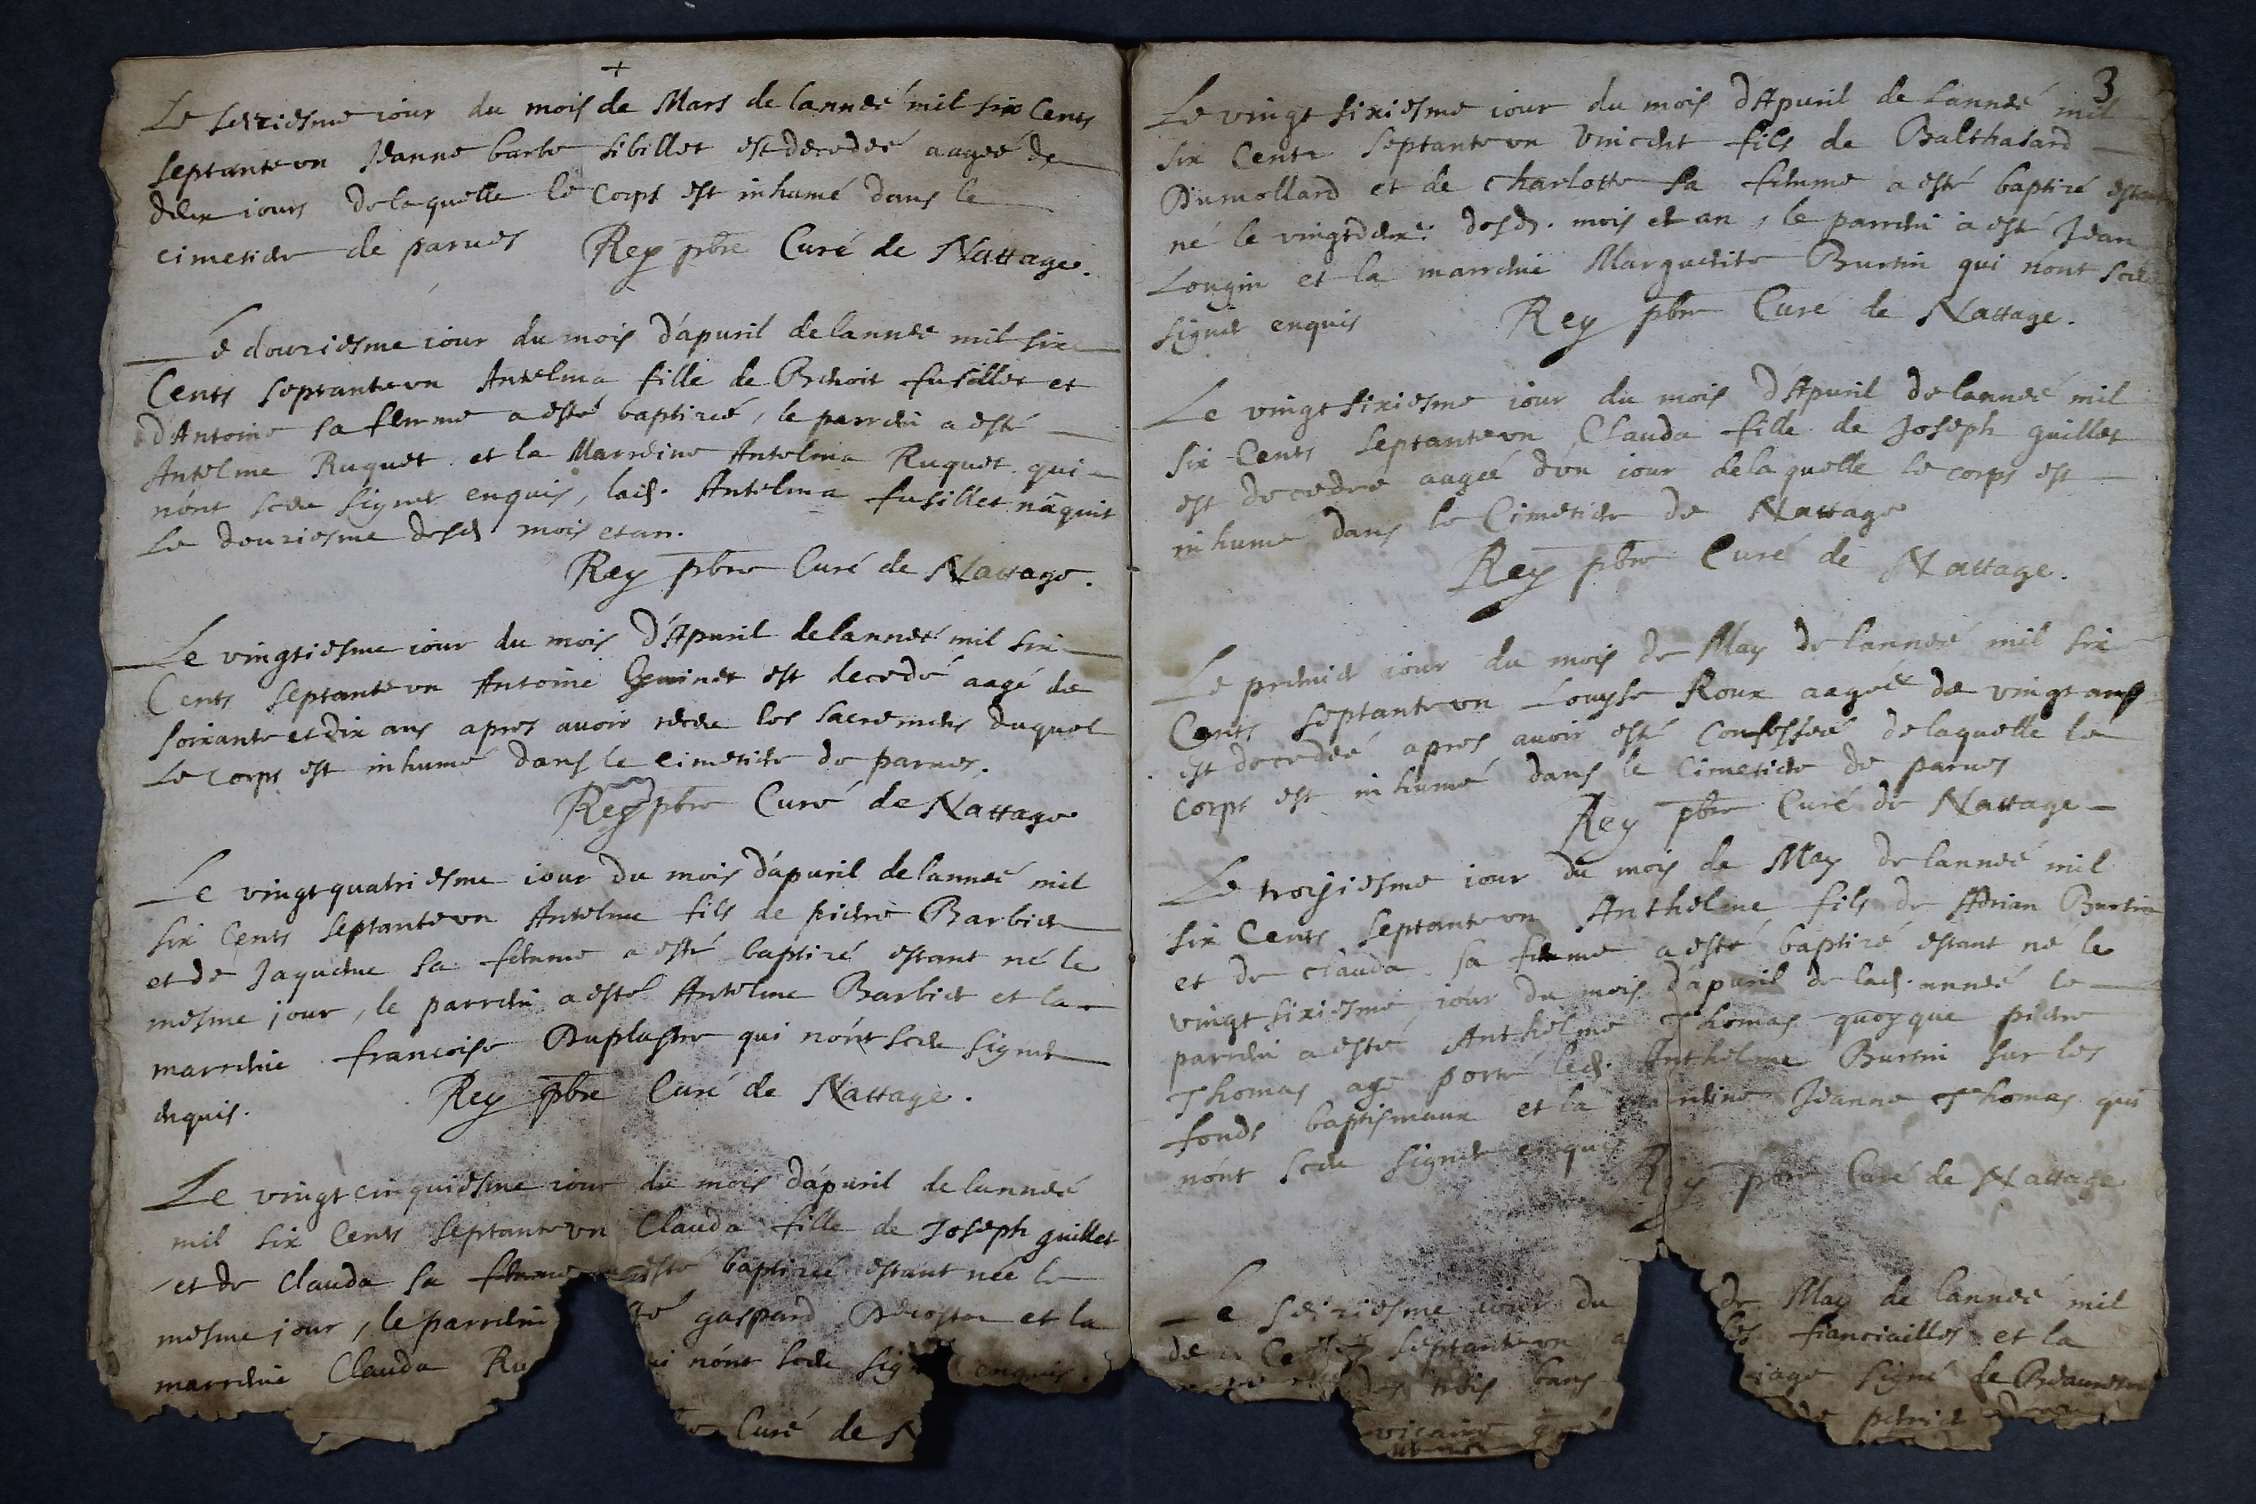 +
Le seiziesme iour du mois de Mars de lanneé mil six Cents
septante vn Jeanne barbe sibillet est decedeé aageé de
deux iours de laquelle le Corps est inhumé dans le
cimetiere de parues Rey pbre Curé de Nattage.
Le douziesme iour du mois d'apuril de lannée mil six
Cents septante vn Antelma fille de Benoit fusillet et
d'Antoine sa femme a esté baptizeé, le parrein a esté
Antelme Ruquet et la Marreine Antelma Ruquet qui
nónt sceu signer enquis, lad. Antelma fusillet náquit
Le douziesme desd. mois et an.
Rey pbre Curé de Nattage.
Le vingtiesme iour du mois d'Apuril de lanneé mil six
Cents septante vn Antoine est decedé aagé de
soixante et dix ans apres auoir receu les sacremens duquel
Le corps est inhumé dans le cimetiere de parues.
Rey pbre Curé de Nattage
Le vingt quatriesme iour du mois d'apuril de lanneé mil
six Cents septante vn Antelme fils de pierre Barbier
et de Jaqueme sa femme a esté baptizé estant né le
mesme jour, le parrein a esté Antelme Barbier et la
marreine francoise Duplastre qui nónt sceu signer
enquis. Rey pbre Curé de Nattage.
Le vingt cinquiesme iour du mois d'apuril de lanneé
mil six Cents septante vn Clauda fille de Joseph guillet
et de Clauda sa femme esté baptizeé estant née le
mesme jour, le parrein té gaspard Decoster et la
marreine Clauda Ru ui nónt sceu sig enquis.
Curé de N
3
Le vingt sixiesme iour du mois d'Apuril de Lanneé mil
six Cents septante vn Vincent fils de Balthasard
Dumollard et de Charlotte sa femme a esté baptizé estant
né le vingt deux: desd. mois et an, le parrein a esté Jean
Longin et la marreine Marguerite Burtin qui nónt sceu
signer enquis Rey pbre Curé de Nattage.
Le vingt sixiesme iour du mois d'Apuril de lanneé mil
six Cents septante vn Clauda fille de Joseph guillet
est decedeé aageé d'vn iour de laquelle le corps est
inhumé dans le Cimetiere de Nattage
Rey pbre Curé de Nattage.
Le premier iour du mois de May de lanneé mil six
Cents septante vn Louyse Roux aageé de vingt ans
est decedeé apres auoir esté Confesseé de laquelle le
corps est inhumé dans le Cimetiere de parues
Rey pbre Curé de Nattage
Le troisiesme iour du mois de May de lanneé mil
six Cents septante vn Anthelme fils de Adrian Burtin
et de clauda sa femme a esté baptizé estant né le
vingt sixiesme iour du mois d'apuril de lad. anneé le
parrein a esté Anthelme Thomas quoyque pierre
Thomas aye porté led. Anthelme Burtin sur les
fonds baptismaux et la marreine Jeanne Thomas qui
nónt sceu signer enquis
Rey pbre Curé de Nattage
Le seiziesme iour du de May de lanneé mil
septante vn a les fianciailles et la
des trois bans iage signé de
vicaire